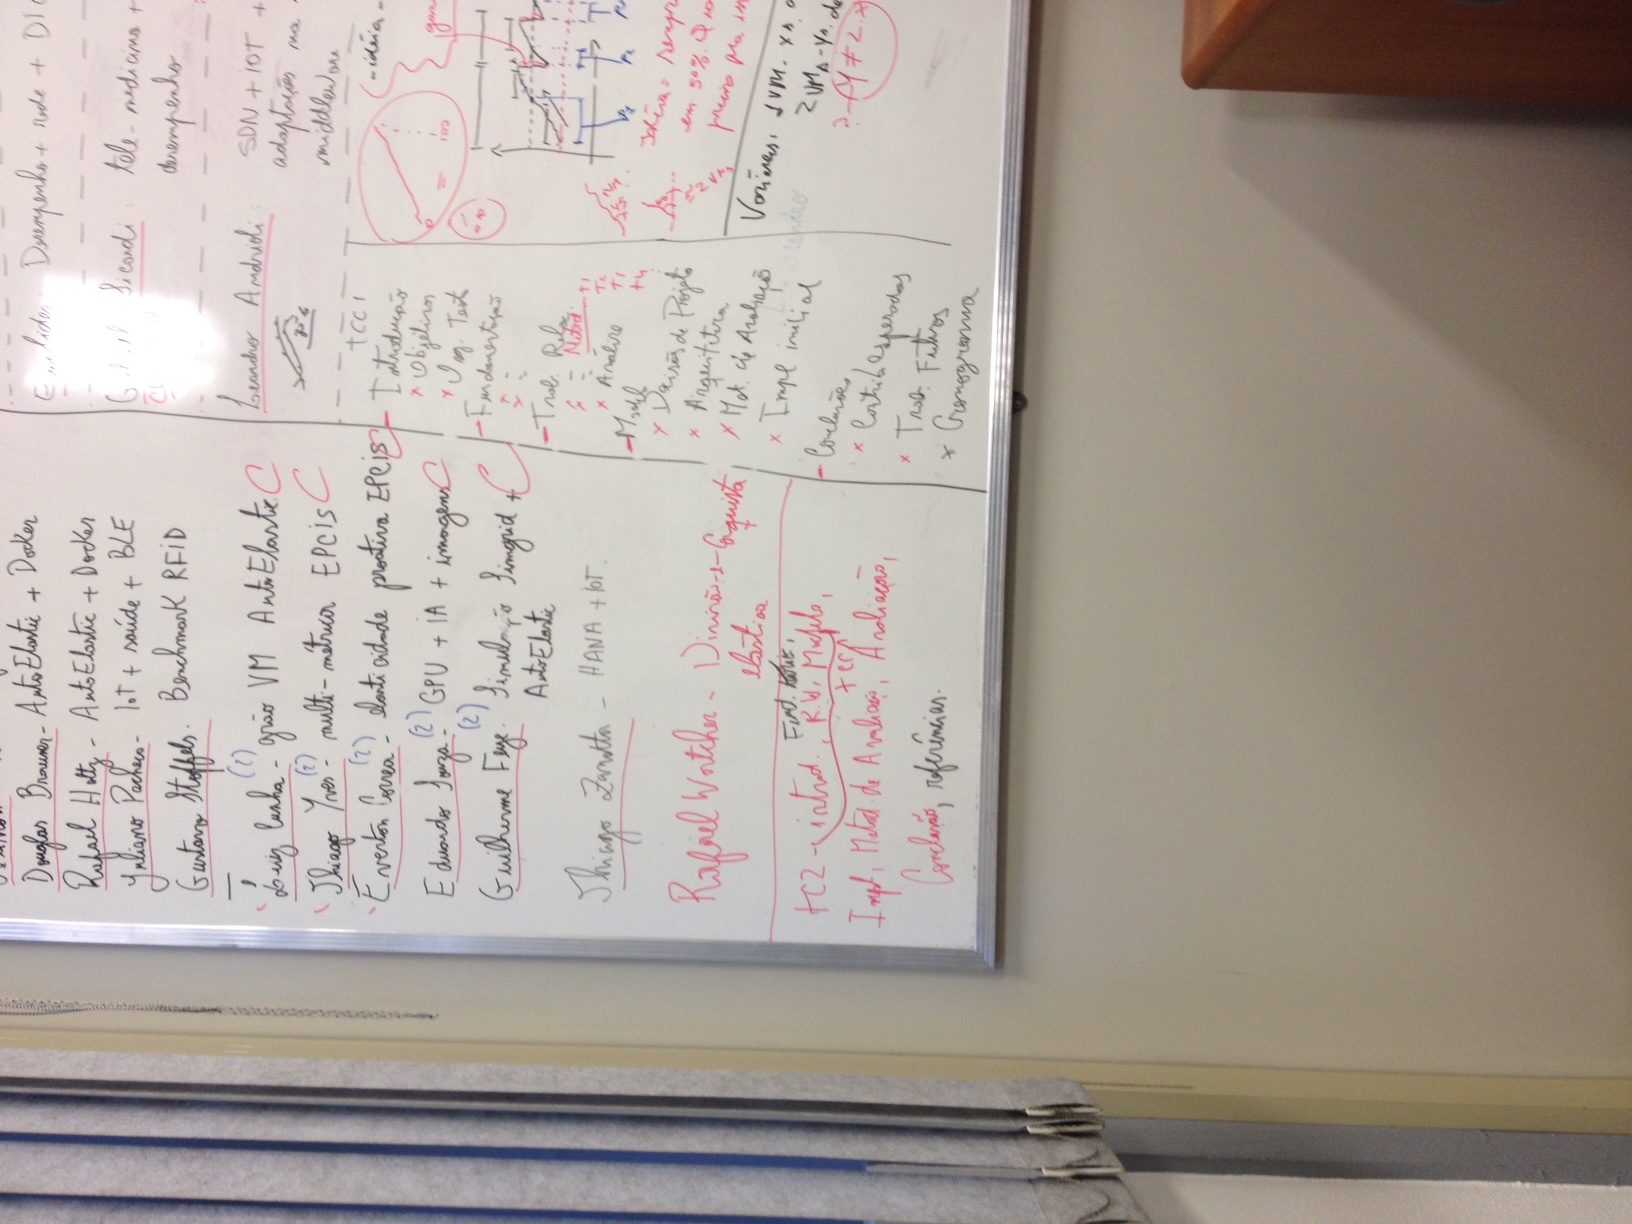 Douglas Brauner - AutoElastic + Docker
Rafael Holtz - AutoElastic + Docker
Juliano Pacheco - IoT + saúde + BLE
Gustavo Stoffels. Benchmark RFiD
Luiz Cunha (2) - grão VM AutoElastic C
Thiago Yves (2) - multi-métricas EPCIS C
Everton Correa (2) - elasticidade proativa EPCIS C
Eduardo Souza (2) - GPU + IA + imagens C
Guilherme (2) Simulação Simgrid + C
AutoElastic
Thiago - HANA + IoT.
Rafael - Divisão-e-Conquista
elástica
TC2 - introd., R.W., Modelo,
TCC1
Impl, Metod. de Avaliação, Avaliação,
Conclusão, referências.
Desempenho + rede +
Sicardi: tele-medicina +
desempenho
Leandro Andrioli: SDN + IOT +
adaptações no
middleware
TCC1
- Introdução
x Objetivos
x
- Fundamentação
- Trab. Relac.
x = Metod T1
x Análise T2
T3
T4
- Modelo
x Decisões de Projeto
x Arquitetura
x Met. de Avaliação
x Impl inicial
- Conclusões
x Contrib. esperadas
x Trab. Futuros
x Cronograma
- idéia -
0 = 100
Idéia = sempre
em 50%.
precisa pra
Variáveis: 1VM.
2VMs -
? -